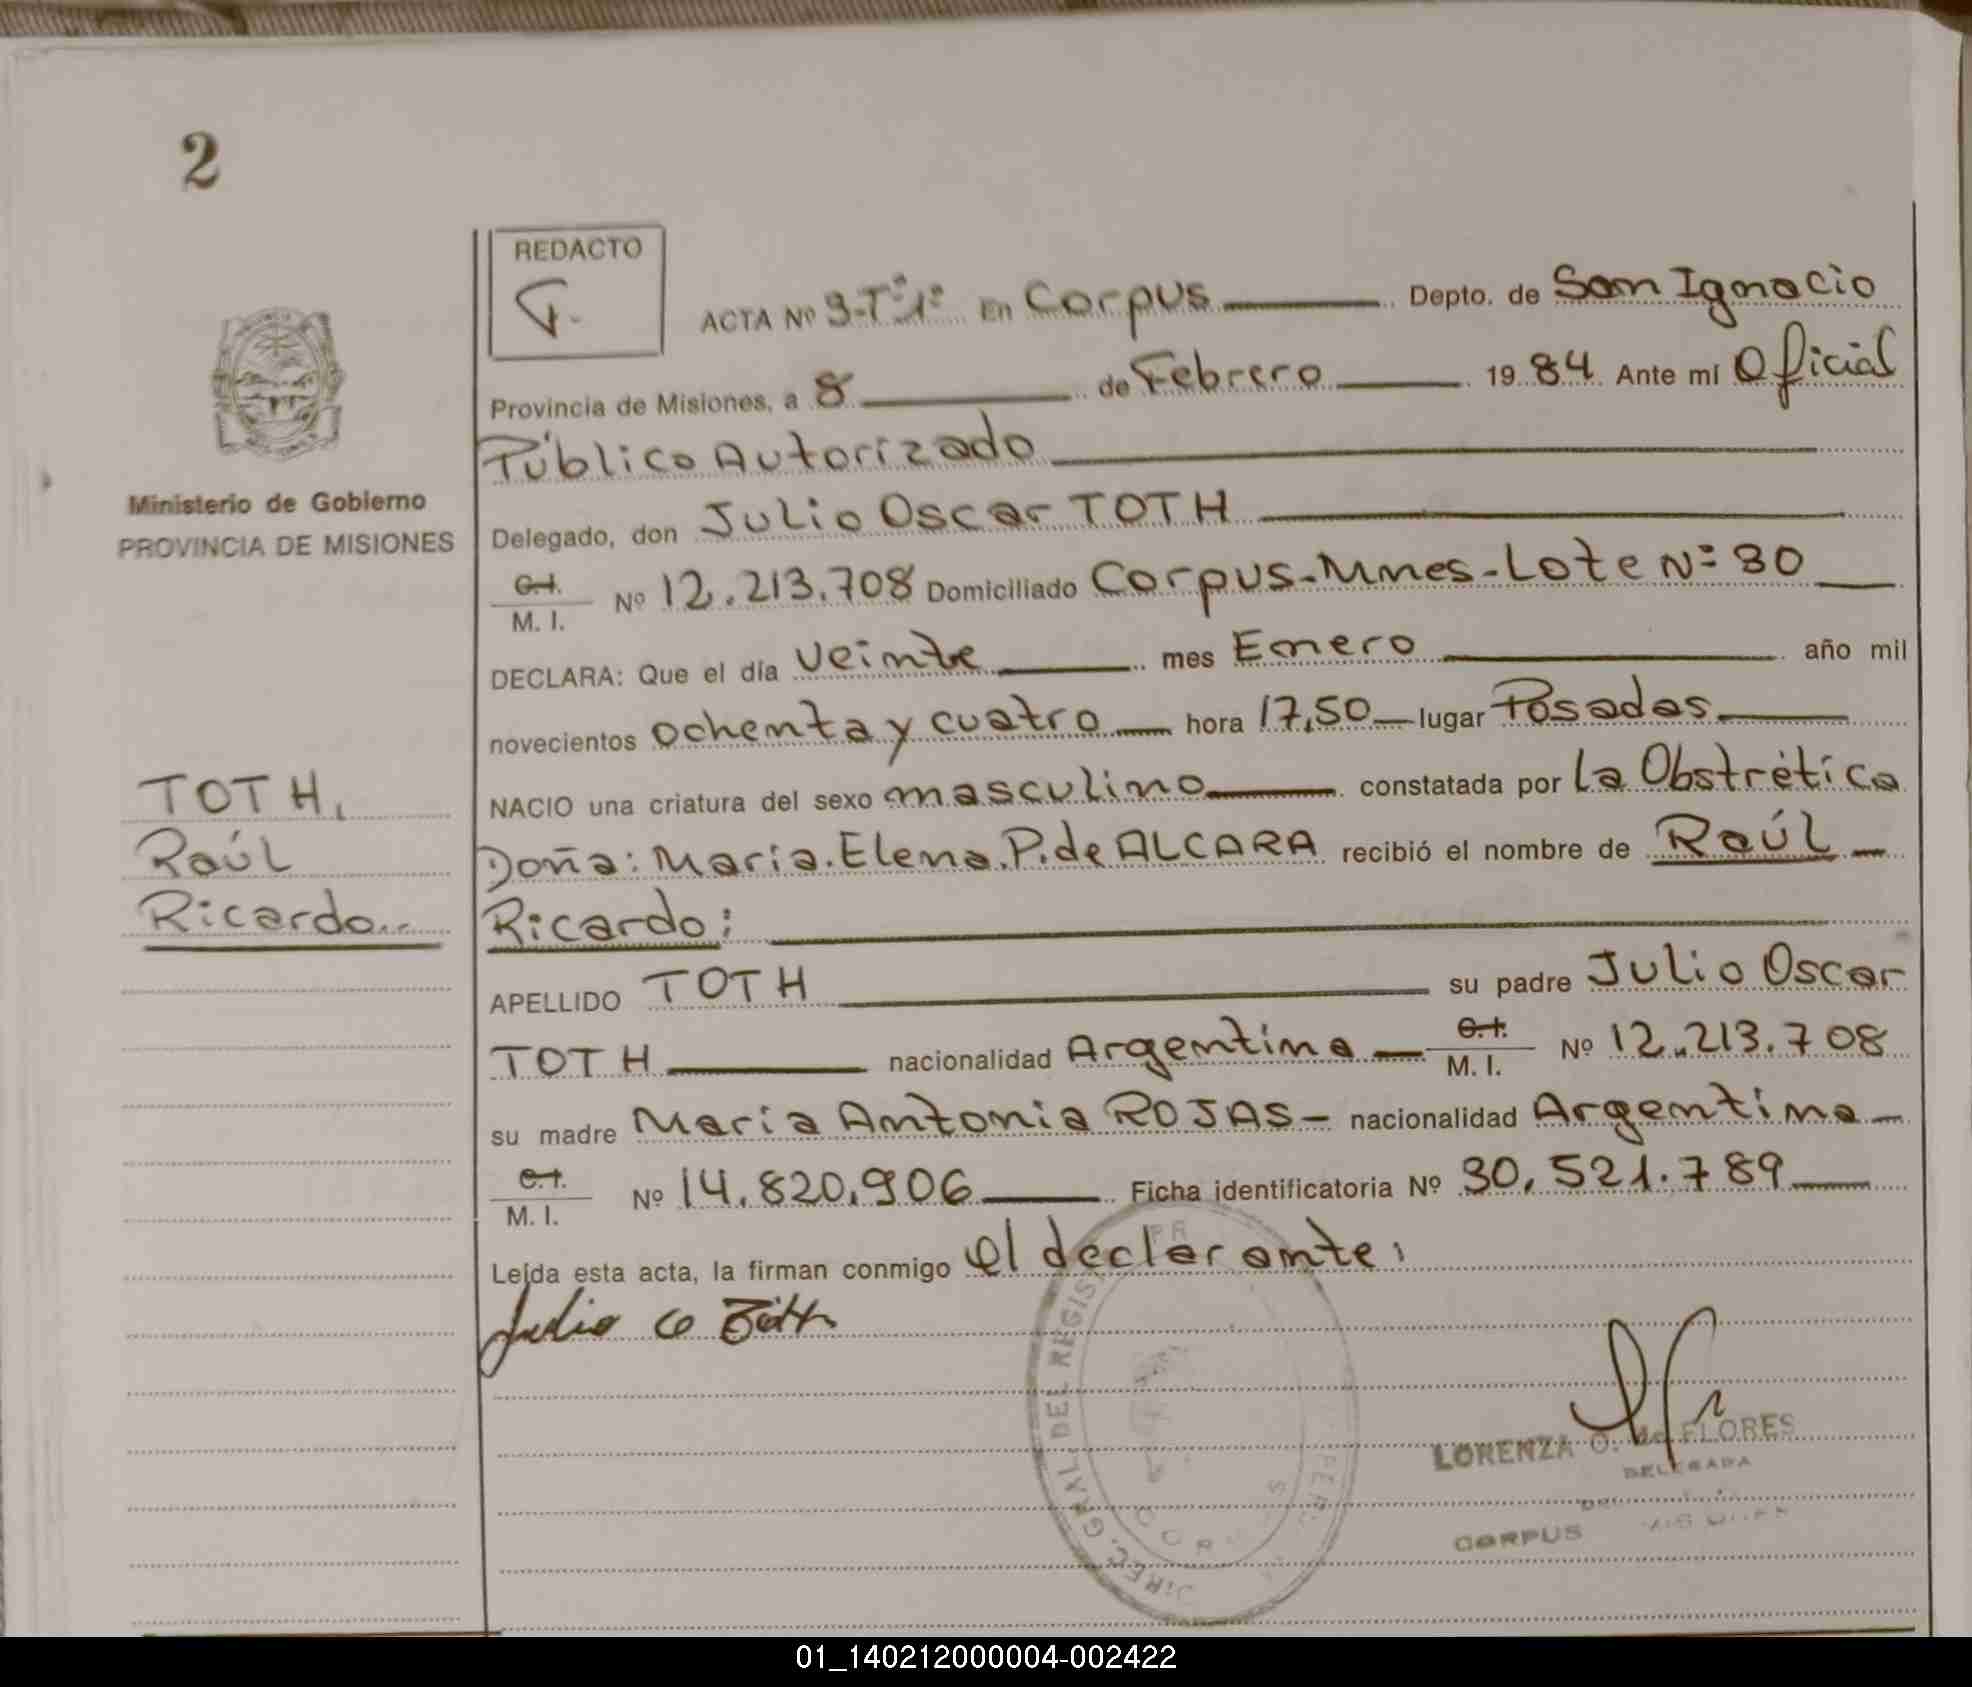 2
REDACTO
ACTA Nº 9-Tº1º En Corpus Depto. de San Ignacio
Provincia de Misiones, a 8 de Febrero 1984 Ante mi Oficial
Público Autorizado
Ministerio de Gobierno
PROVINCIA DE MISIONES
Delegado, don Julio Oscar TOTH
C.I.
M. I. Nº 12.213.708 Domiciliado Corpus-Mnes-Lote Nº 30
DECLARA: Que el día veinte mes Enero año mil
novecientos ochenta y cuatro hora 17,50 lugar Posadas
TOTH,
Raúl
Ricardo..
NACIO una criatura del sexo masculino constatada por la Obstrética
Doña: María. Elena. P. de ALCARA recibió el nombre de Raúl
Ricardo:
APELLIDO TOTH su padre Julio Oscar
TOTH nacionalidad Argentina C.I. M. I. Nº 12.213.708
su madre María Antonia ROJAS- nacionalidad Argentina
C.I.
M. I. Nº 14.820.906 Ficha identificatoria Nº 30.521.789
Leída esta acta, la firman conmigo el declarante;
Julio O Toth
DIREC. GRAL. DEL REGIS
LORENZA O. de FLORES
DELEGADA
CORPUS MISIONES
01_140212000004-002422